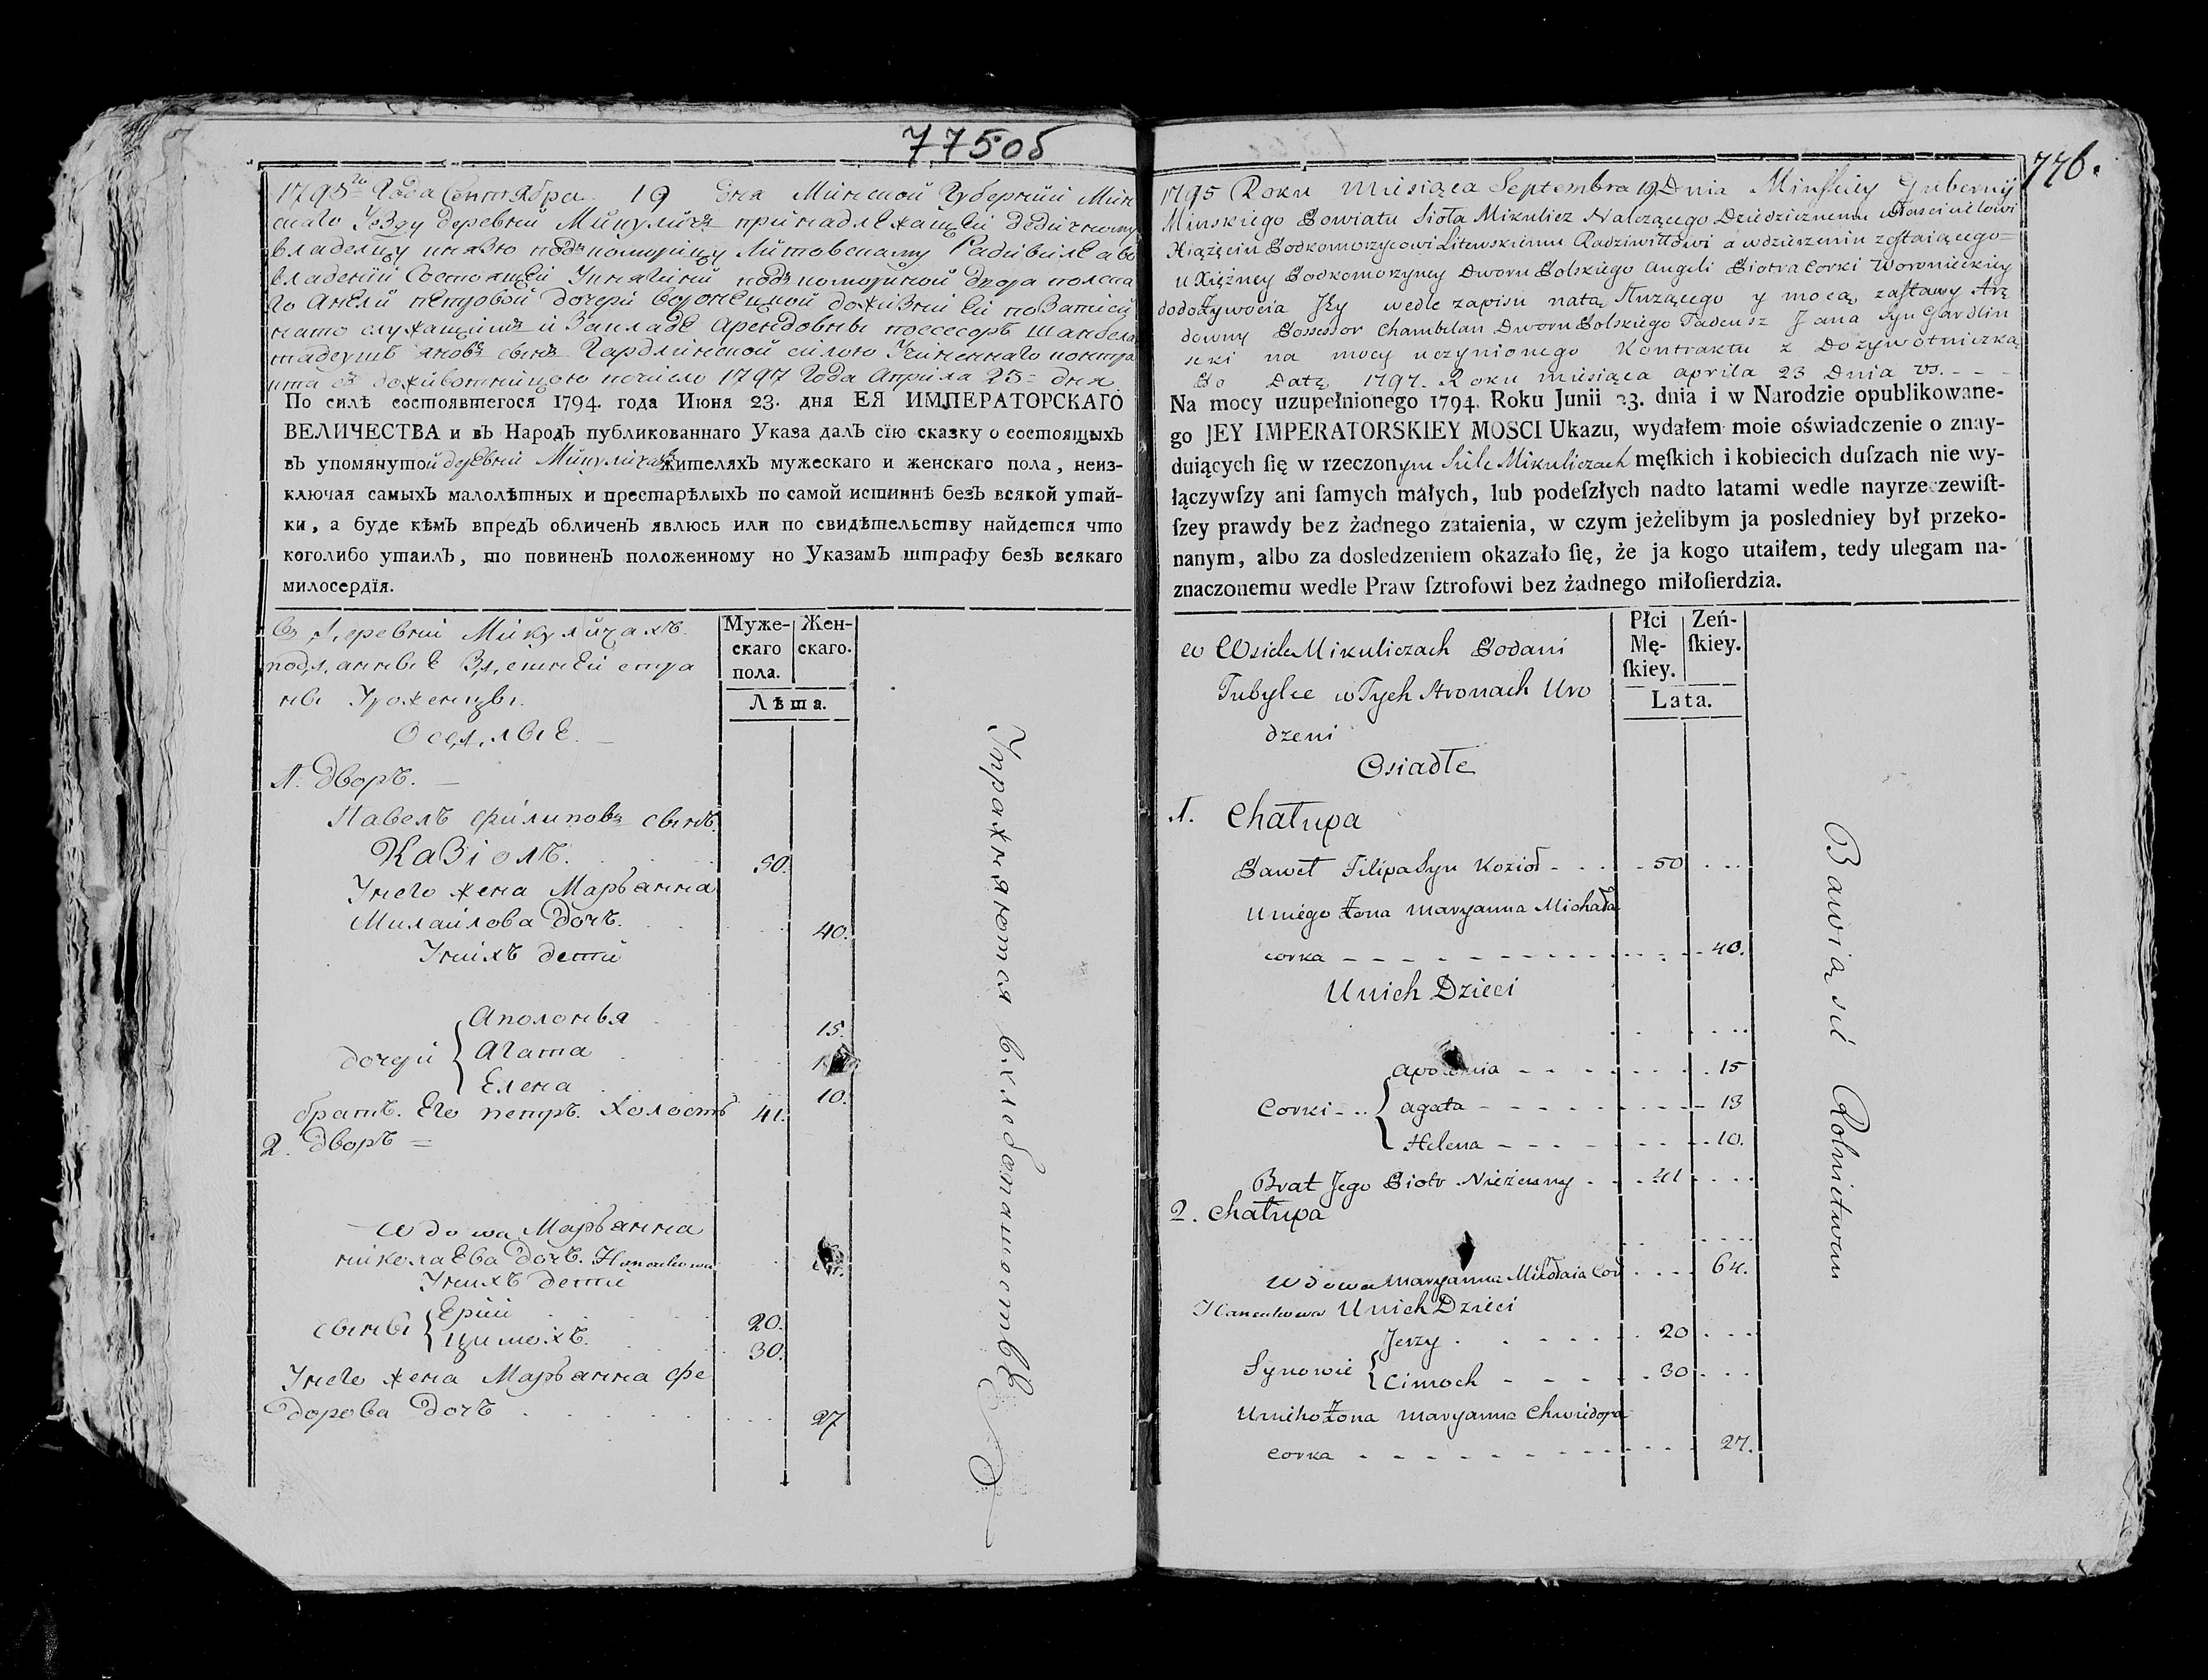 775об
1795го Года Сентября 19 дня Минской Губернии Мин
скаго Уезду деревни Микуличъ принадлежащей Дедичному
владельцу князю подкоморицу Литовскому Радивиле а во
владении Состоящей Укнягини подъкомориной двора полска
го Анели петровой дочери воронецкой доживотнѣ Ей по записи
натo служащиин и Закладе арендовны поссесоръ шанбеланъ
тадеушъ яновъ сынъ Гардлинской силою Учиненнаго контра
кта съ доживотницою почисло 1797 Года Априля 23 дня
По силѣ состоявшегося 1794. года Июня 23. дня ЕЯ ИМПЕРАТОРСКАГО
ВЕЛИЧЕСТВА и въ Народъ публикованнаго Указа далъ сїю сказку о состоящыхъ
въ упомянутой деревни Микуличахъ жителяхъ мужескаго и женскаго пола, неиз-
ключая самыхъ малолѣтных и престарѣлыхъ по самой истиннѣ безъ всякой утай-
ки, а буде кѣмъ впредъ обличенъ явлюсь или по свидѣтельству найдется что
коголибо утаилъ, то повиненъ положенному но Указамъ штрафу безъ всякаго
милосердїя.
Въ деревни Микуличахъ
подданные Здешней стра
ны Уроженцы
Оседлые
Муже-
скаго
пола.
Жен-
скаго.
Лѣта.
1. Дворъ.
Павелъ филиповъ сынъ
Казіолъ. 50.
Унего жена Марьанна
Михайлова Дочъ. 40.
Унихъ дети
Дочери
Аполонья 15.
Агата
Елена 10.
братъ. Его петръ. Холостъ 41.
2. Дворъ
Wdowa Марьанна
николаева Дочъ.
Унихъ дети
Сыны
Ерiй 20.
Цимохъ. 30.
Унего жена Марьанна фе
дорова Дочъ 27
Упражняются вхлебопашестве
776.
1795 Roku Miesiąca Septembra 19 Dnia Minskiey Gubernij
Minskiego Powiatu Sioła Mikulicz Nalezącego Dziedzicznemu włascicielowi
Xiążęciu Podkomorzycowi Litewskiemu Radziwiłłowi a wdzierżeniu zostaiącego
u Xiężney Podkomorzyney Dworu Polskiego Angeli Piotra Corki Woronieckiey
dodożywocia Jey wedle zapisu natą służącego y mocą zastawy Arę
downy Possessor Chambelan Dworu Polskiego Tadeusz Jana Syn Gardlin
ski na mocy uczynionego Kontraktu z Dożywotniczką
Po Datą 1797. Roku miesiąca aprila 23 Dnia vs.
Na mocy uzupełnionego 1794. Roku Junii 23. dnia i w Narodzie opublikowane-
go JEY IMPERATORSKIEY MOSCI Ukazu, wydałem moie oświadczenie o znay-
duiących ſię w rzeczonym Siele Mikuliczach męſkich i kobiecich duſzach nie wy-
łączywſzy ani ſamych małych, lub podeſzłych nadto latami wedle nayrzeczewiſt-
ſzey prawdy bez żadnego zataienia, w czym jeżelibym ja posledniey był przeko-
nanym, albo za dosledzeniem okazało ſię, że ja kogo utaiłem, tedy ulegam na-
znaczonemu wedle Praw ſztrofowi bez żadnego miłoſierdzia.
w Wsiele Mikuliczach Podani
Tubylce w Tych Stronach Uro
dzeni
Osiadłe
Płci
Mę-
ſkiey.
Zeń-
ſkiey.
Lata.
1. Chałupa
Paweł Filipa Syn Kozioł 50
Uniego Żona Maryanna Michała
corka 40.
Unich Dzieci
Corki
Apolonia 15
Agata 13
Helena 10.
Brat Jego Piotr Nieżenny 41
2. Chałupa
Wdowa Maryanna Mikołaia Cor 64.
Unich Dzieci
Synowie
Jerzy 20
Cimoch 30
Unieho Żona Maryanna Chwiedora
corka 27.
Bawią sie Rolnictwem